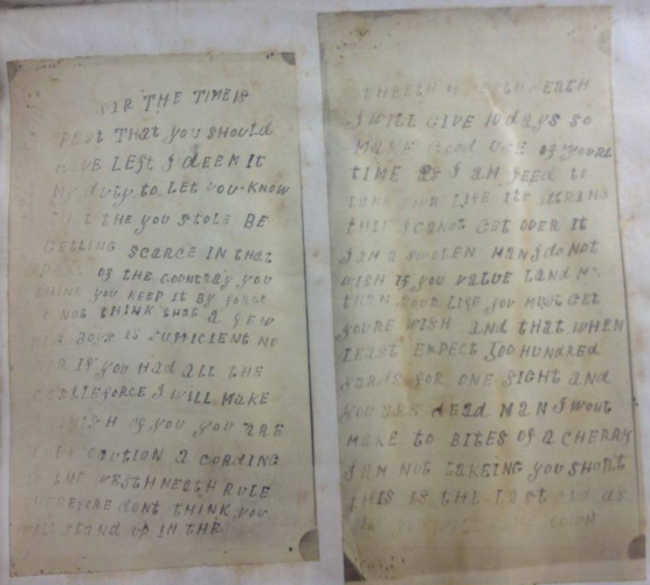 SIR THE TIME IS
PAST THAT you SHOULD
HAVE LEFT I dEEM IT
My duty to LET you KNOW
the you STOLE BE
GETTING SCARCE IN that
PART of THE COUNTRAY you
THINK you KEEP IT By FORCE
do NOT tHINK tHAt A fEW
BOyS IS SUFFICIENT NO
NOR If you HAd ALL tHE
CASTLEFORCE I WILL MAKE
FINISH Of you you ARE
CAUTION A CORDING
to tHE WESTHMEATH RULE
THEREFORE dONt THINK you
WILL StANd UP IN THE
tHEETH of WESTHMEATH
I WILL GIVE 10 days so
MAKE GOOd USE Of yOURE
TIME AS I AM fEEd to
tAKE yOUR LIFE
THIS I CANOt GET OVER It
I AM A SWOLEN MAN I do NOt
WISH If you VALUE LANd
THAN yOUR LIfE you MUSt GEt
yOURE WISH ANd tHAt WHEN
LEASt EXPECt 100 HUNdREd
yARdS fOR ONE SIGHt ANd
yOU ARE dEAd MAN I WONt
MAKE tO BItES Of A CHERRy
I AM NOt tAKEING yOU SHORt
tHIS IS tHE LASt ANd AS